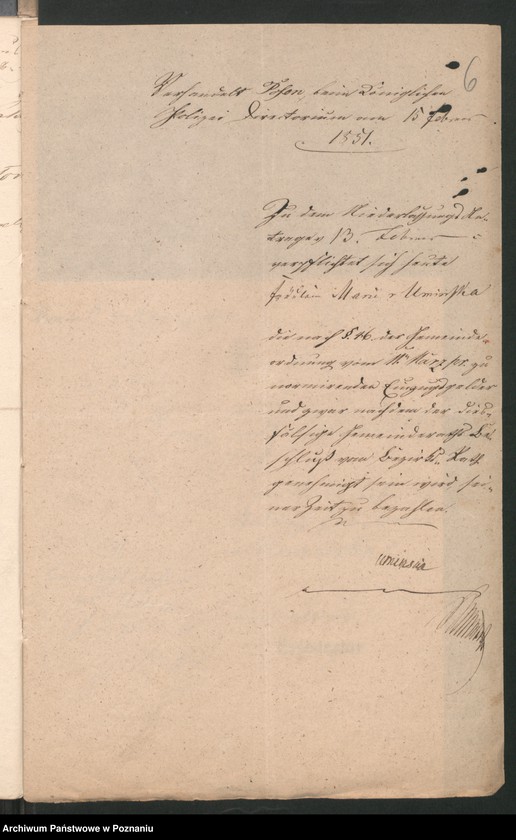 6
Verhandelt Posen, beim Königlichen
Polizei Directorium am 15 Februar
1851.
Zu dem Niederlassungs An-
trage v 13. Februar
verpflichtet sich heute
Fräulein Marie v Uminska
die nach §. 46. der Gemeinde-
ordnung vom 11t März pr. zu
normirenden Einzugsgelder
und zwar nachdem der dies-
fällige Gemeinderaths Be-
schluß vom Bezirks Rath
genehmigt sein wird sei-
ner Zeit zu bezahlen.
Uminska
Archiwum Państwowe w Poznaniu